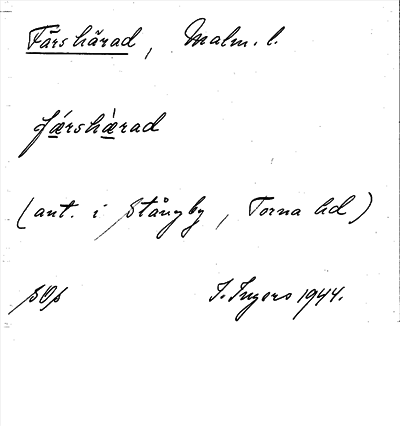 Färs härad, Malm. l.
fǽrshæ̀rad
(ant. i Stångby, Torna hd)
SOS
I. Ingers 1944.